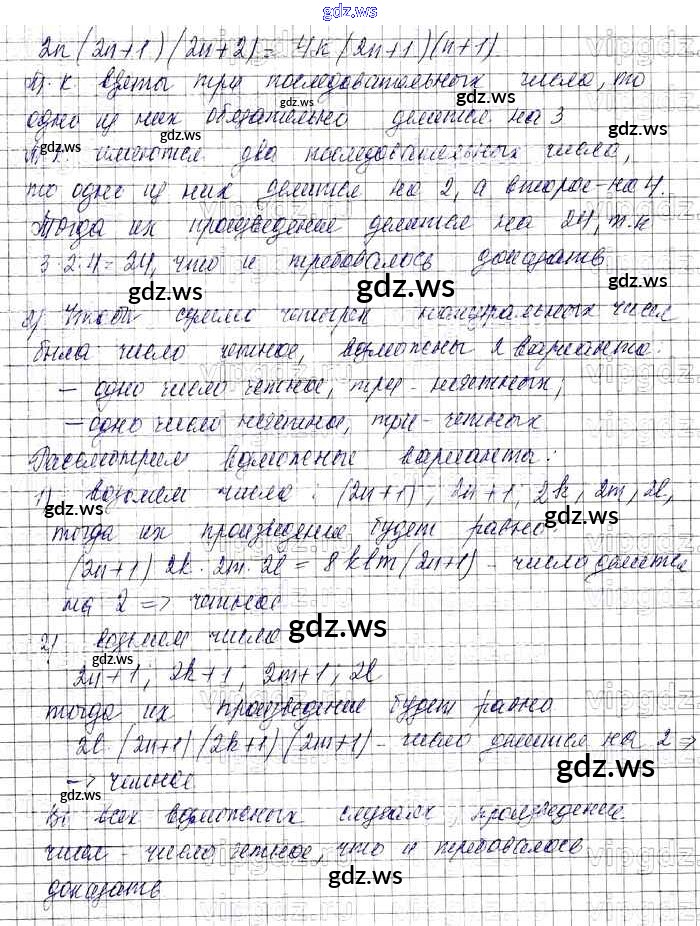 gdz.ws
2n(2n+1)(2n+2) = 4n(2n+1)(n+1).
Т.к. взяты три последовательных числа, то
одно из них обязательно делится на 3
Т.к. имеются два последовательных числа,
то одно из них делится на 2, а второе - на 4.
Тогда их произведение делится на 24, т.к
3·2·4=24, что и требовалось доказать
2) Чтобы сумма четырех натуральных чисел
была число четное, возможны 2 варианта:
— одно число четное, три - нечетных;
— одно число нечетное, три - четных
Рассмотрим возможные варианты:
1) возьмем числа: (2n+1); 2n+1; 2k, 2m, 2l,
тогда их произведение будет равно:
(2n+1) 2k · 2m · 2l = 8klm(2n+1) - число делится
на 2 => четное
2) возьмем числа
2n+1; 2k+1; 2m+1; 2l
тогда их произведение будет равно
2l·(2n+1)(2k+1)(2m+1) - число делится на 2 =>
=> четное
Во всех возможных случаях, произведение
чисел - число четное, что и требовалось
доказать
gdz.ws